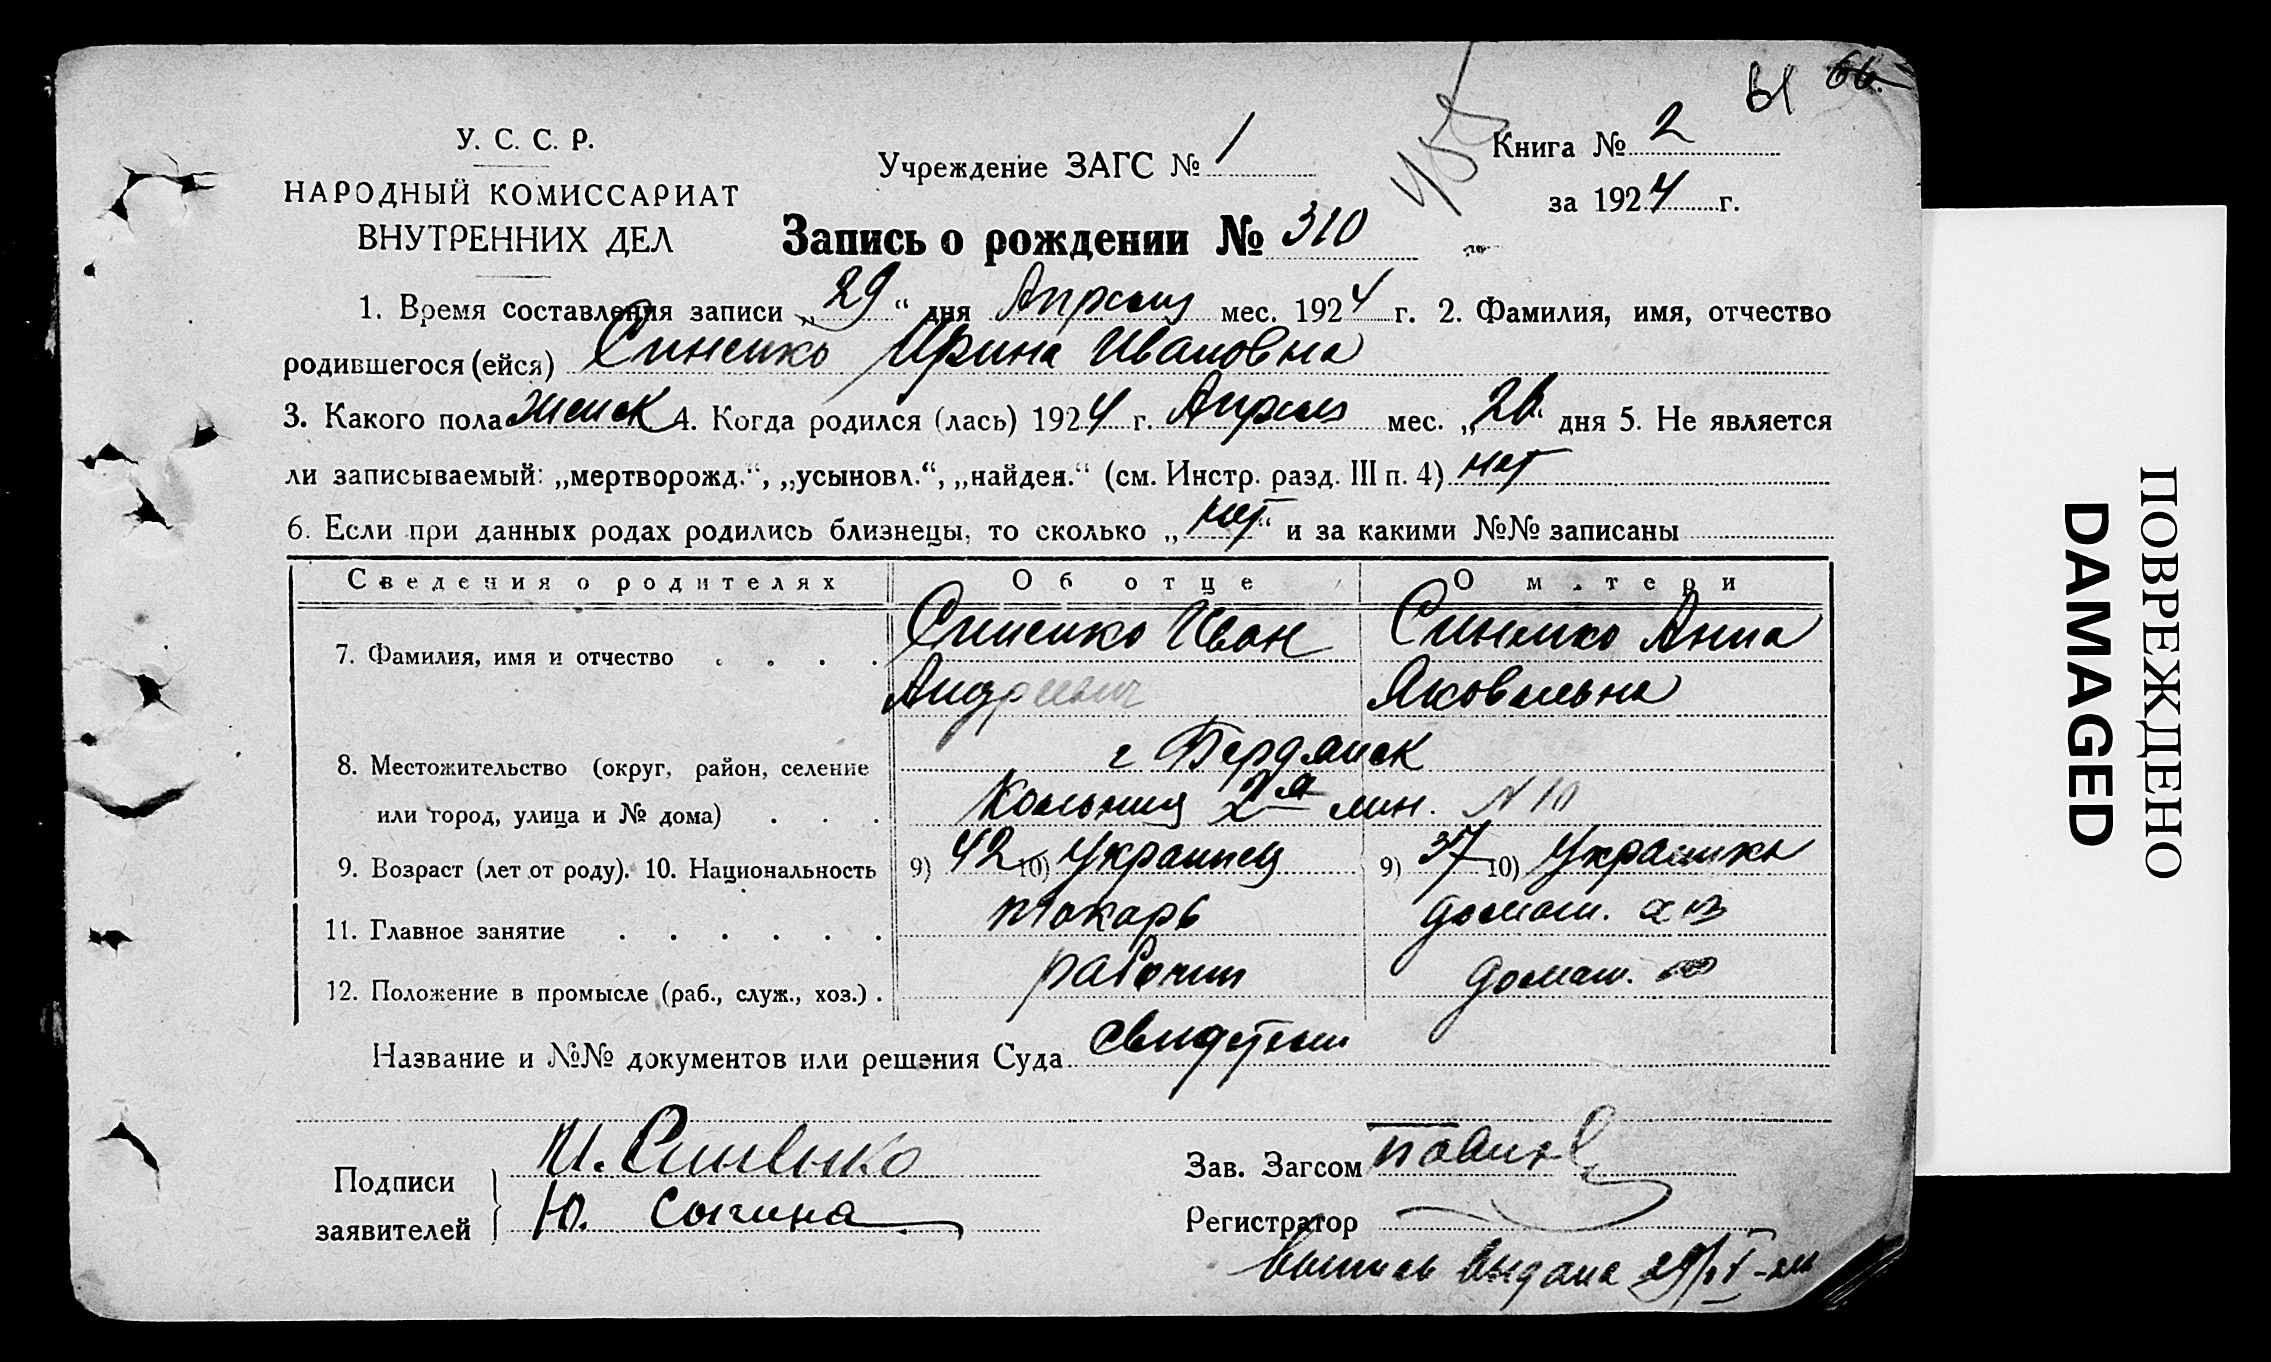 61 66.
У. С. С. Р.
НАРОДНЫЙ КОМИССАРИАТ
ВНУТРЕННИХ ДЕЛ
Учреждение ЗАГС № 1
Книга № 2
за 1924 г.
Запись о рождении № 310
1. Время составления записи „29“ дня Апреля мес. 1924 г. 2. Фамилия, имя, отчество
родившегося (ейся) Синенко Ирина Ивановна
3. Какого пола женск 4. Когда родился (лась) 1924 г. Апреля мес. „26“ дня 5. Не является
ли записываемый: „мертворожд.“, „усыновл.“, „найден.“ (см. Инстр. разд. III п. 4) нет
6. Если при данных родах родились близнецы, то сколько „нет“ и за какими №№ записаны
Сведения о родителях Об отце О матери
7. Фамилия, имя и отчество . . . . Синенко Иван Синенко Анна
Андреевич Яковельна
8. Местожительство (округ, район, селение г Бердянск
или город, улица и № дома) . . . Колония 2я лин. N 10
9. Возраст (лет от роду). 10. Национальность 9) 42 10) Украинец 9) 37 10) Украинка
11. Главное занятие . . . . . . токарь домаш. хоз
12. Положение в промысле (раб., служ., хоз.) . рабочий домаш. хоз
Название и №№ документов или решения Суда свидетели
Подписи
заявителей
И. Синенко
Ю. Сыгина
Зав. Загсом
Регистратор
Выпись выдана 29/IV-24
ПОВРЕЖДЕНО
DAMAGED